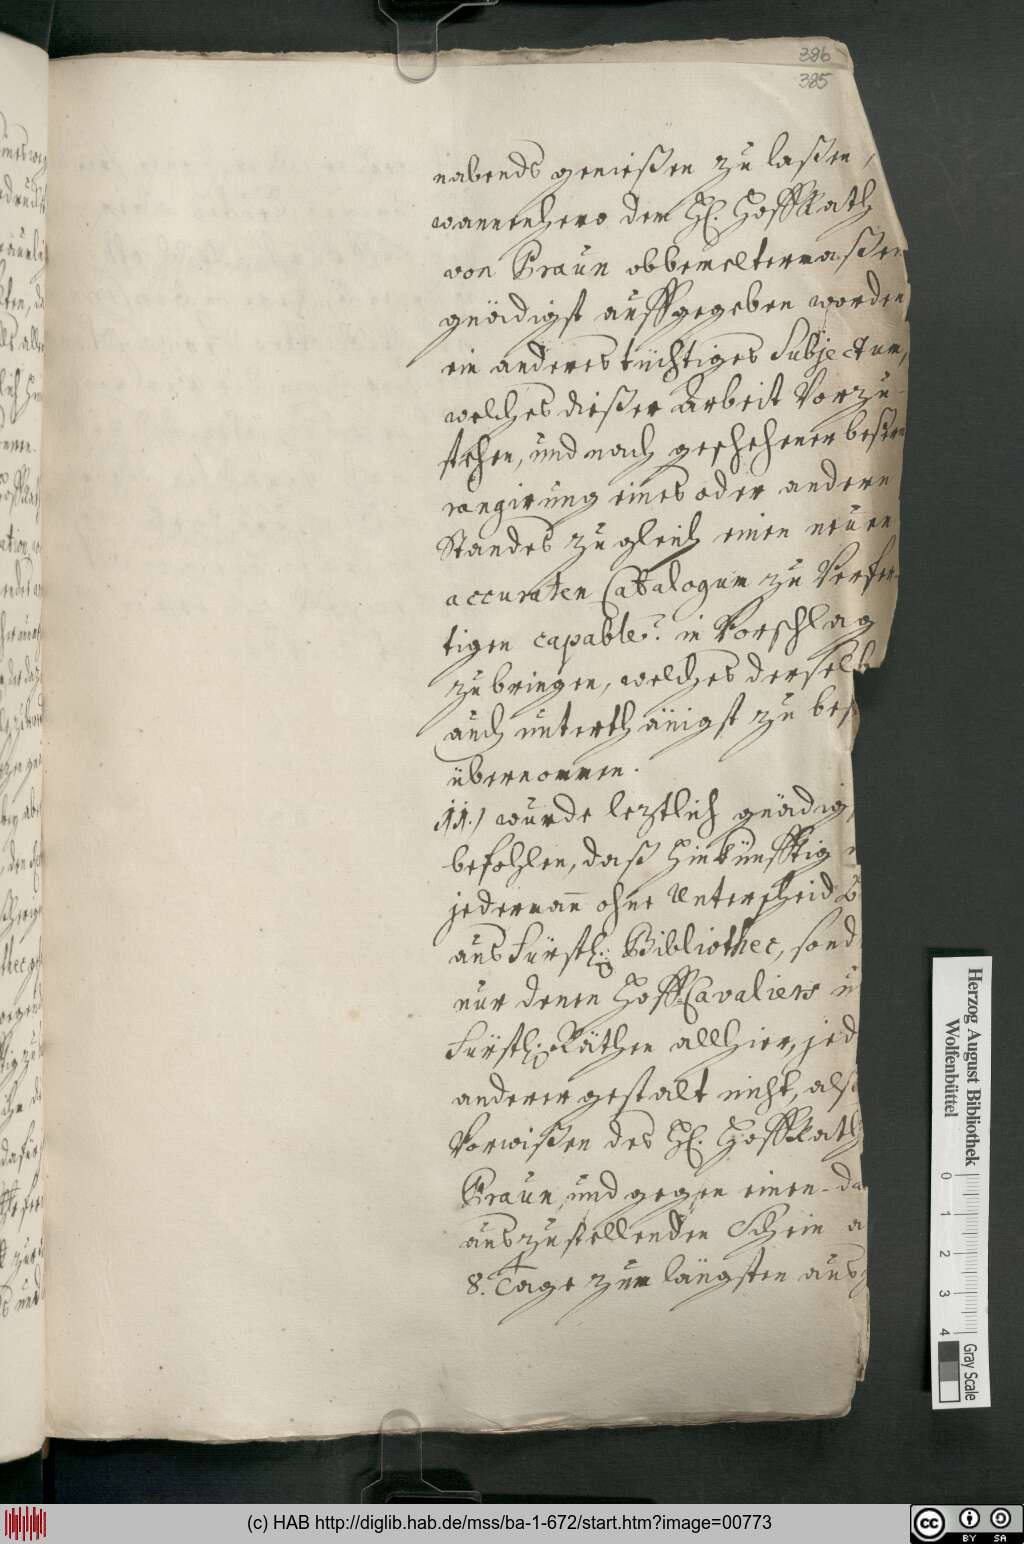 386
385
nabends genießen zu laßen,
wannenhero dem H. HoffRath
von Braun obbemeltermaßen
gnädigst auffgegeben worden
ein anderes tüchtiges Subjectum,
welches dießer Arbeit Vorzu-
stehen, und nach geschehener beßern
rangirung eines oder andern
Standes zugleich einen neuen
accuraten Catalogum zu Verfer-
tigen capable. in Vorschlag
zubringen, welches derselb
auch unterthänigst zu bes
übernommen.
11.) wurde leztlich gnädig
befohlen, daß hinkünfftig
jedermann ohne Unterscheid
aus Fürstl. Bibliothec, sond
nur denen HoffCavaliers u
Fürstl. Räthen allhier, jed
anderer gestalt nicht, alß
Vorwißen des H. HoffRath
Braun, und gegen einen da
auszustellenden Schein a
8. Tage zum längsten aus
Herzog August Bibliothek
Wolfenbüttel
0 1 2 3 4
Gray Scale
(c) HAB http://diglib.hab.de/mss/ba-1-672/start.htm?image=00773
cc BY SA